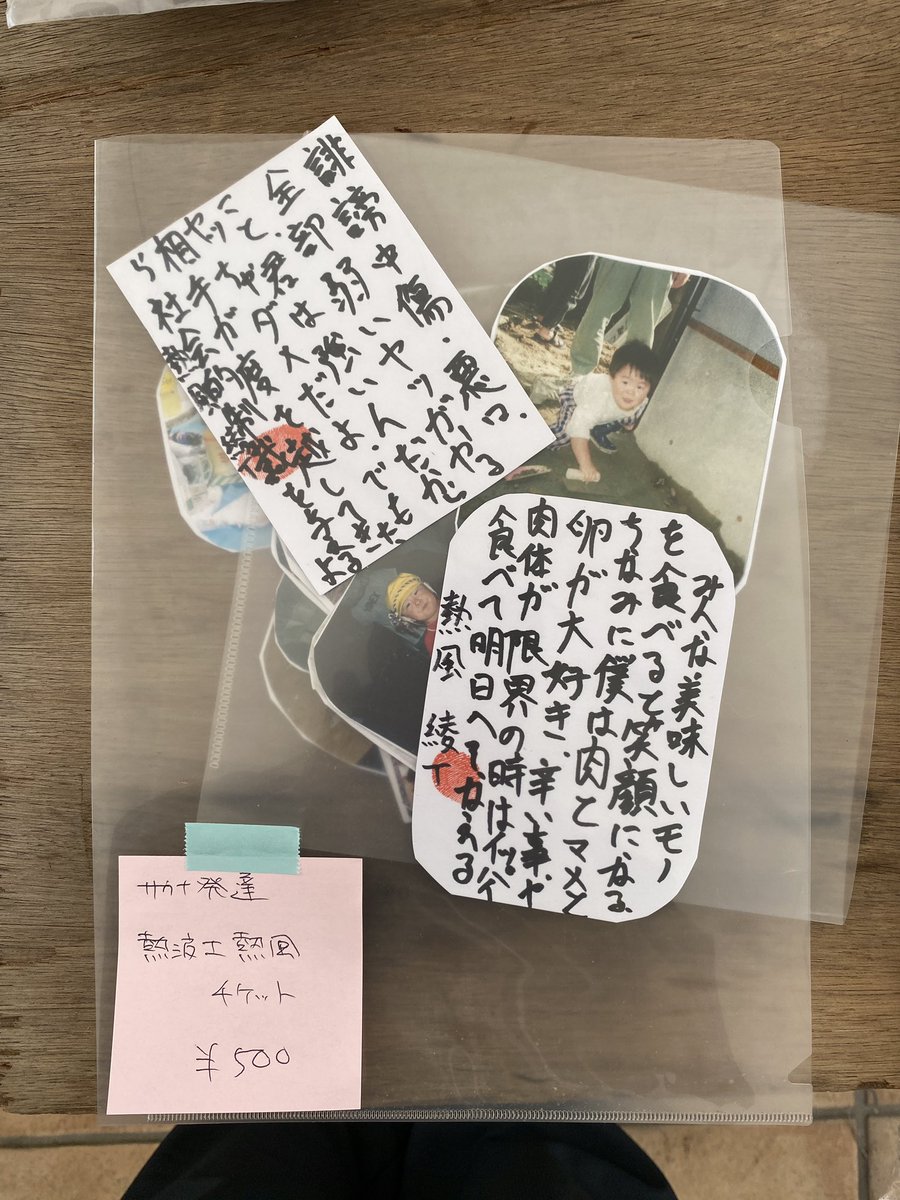 誹謗中傷・悪口、
全部弱いヤツがやる
こと、君は強いんだから
ヤッちゃダメだよ。でも
相手が度を越してきた
ら社会的制裁を与えるよ
熱風
みんな美味しいモノ
を食べると笑顔になる
ちなみに僕は肉とマメと
卵が大好き、辛い事や
肉体が限界の時は
食べて明日へつなげる
熱風 綾丁
サウナ発達
熱波士熱風
チケット
¥500